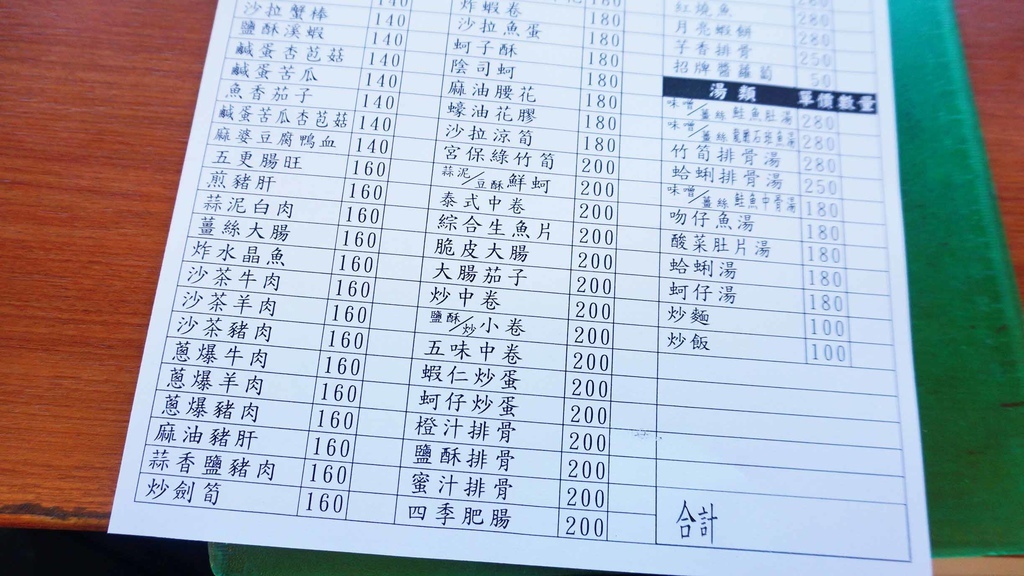 140
沙拉蟹棒 140
鹽酥溪蝦 140
鹹蛋杏芭菇 140
鹹蛋苦瓜 140
魚香茄子 140
鹹蛋苦瓜杏芭菇 140
麻婆豆腐鴨血 140
五更腸旺 160
煎豬肝 160
蒜泥白肉 160
薑絲大腸 160
炸水晶魚 160
沙茶牛肉 160
沙茶羊肉 160
沙茶豬肉 160
蔥爆牛肉 160
蔥爆羊肉 160
蔥爆豬肉 160
麻油豬肝 160
蒜香鹽豬肉 160
炒劍筍 160
炸蝦卷 180
沙拉魚蛋 180
蚵子酥 180
陰司蚵 180
麻油腰花 180
蠔油花膠 180
沙拉涼筍 180
宮保綠竹筍 200
蒜泥/豆酥鮮蚵 200
泰式中卷 200
綜合生魚片 200
脆皮大腸 200
大腸茄子 200
炒中卷 200
鹽酥/炒小卷 200
五味中卷 200
蝦仁炒蛋 200
蚵仔炒蛋 200
橙汁排骨 200
鹽酥排骨 200
蜜汁排骨 200
四季肥腸 200
紅燒魚 280
月亮蝦餅 280
芋香排骨 250
招牌醬蘿蔔 50
湯類 單價 數量
味噌/薑絲 鮭魚肚湯 280
味噌/薑絲 龍膽石斑魚湯 280
竹筍排骨湯 280
蛤蜊排骨湯 250
味噌/薑絲 鮭魚中骨湯 180
吻仔魚湯 180
酸菜肚片湯 180
蛤蜊湯 180
蚵仔湯 180
炒麵 100
炒飯 100
合計